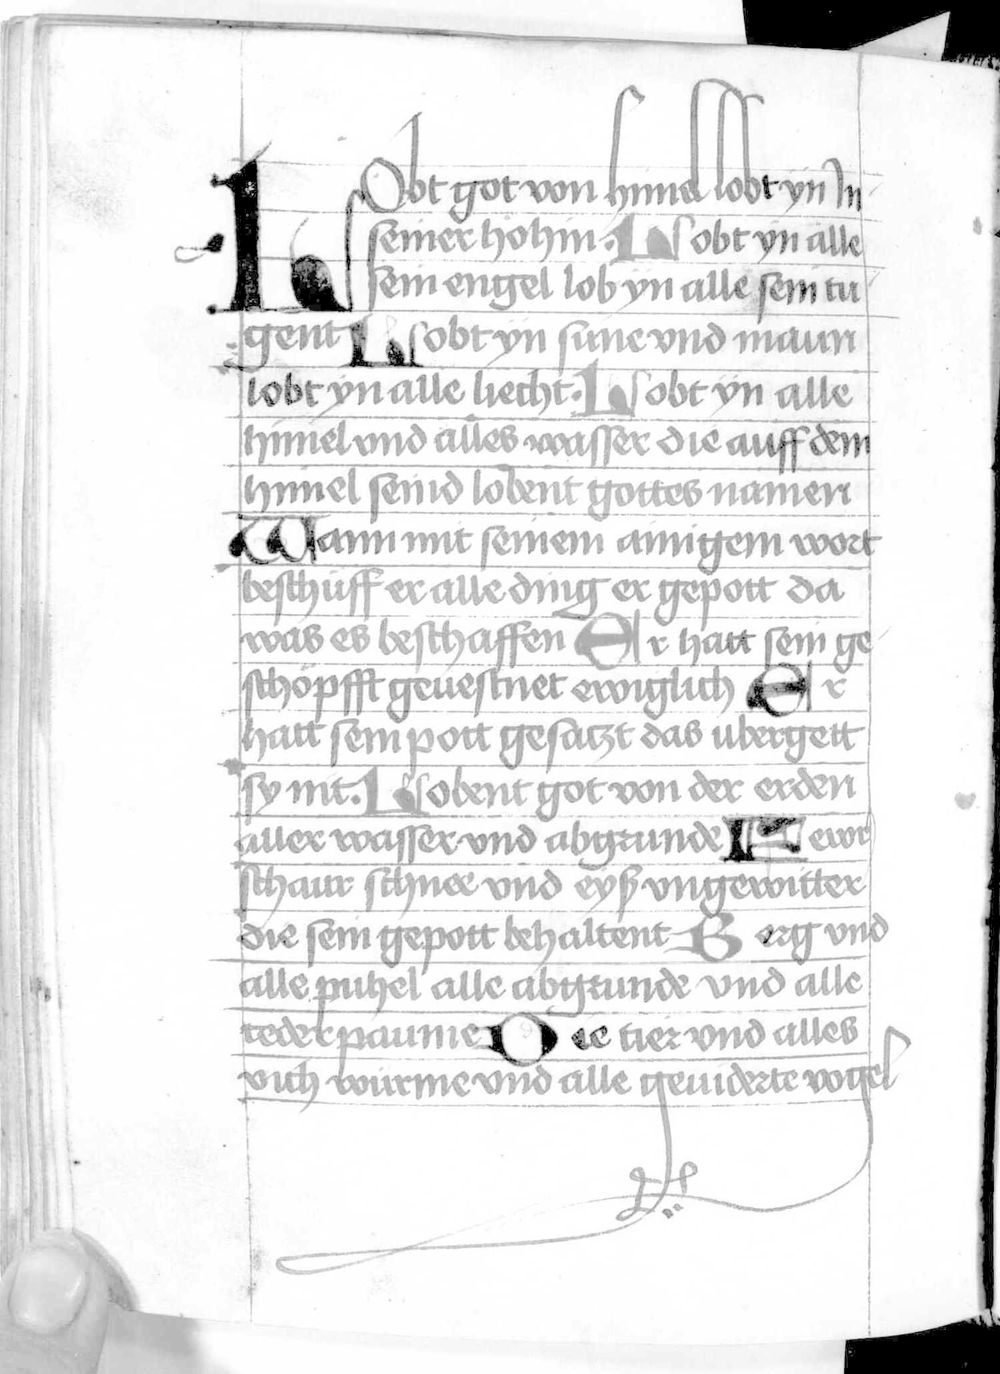 LObt got von himel lobt yn In
seiner höhin. Lobt yn alle
sein engel lob yn alle sein tu
gent Lobt yn sune vnd maun
lobt yn alle liecht. Lobt yn alle
himel vnd alles wasser die auff dem
himel seind lobent gottes namen
Wann mit seinem ainigem wort
beschüff er alle ding er gepott da
was es beschaffen Er hatt sein ge
schöpfft geuestnet ewiglich Er
hatt sein pott gesatzt das ubergett
sy nit. Lobent got von der erden
aller wasser vnd abgrunde Fewr
schaur schnee vnd eyß vngewitter
die sein gepott behaltent Berg vnd
alle puhel alle abgrunde vnd alle
ceder paume Die tier vnd alles
vich würme vnd alle geuiderte vogel